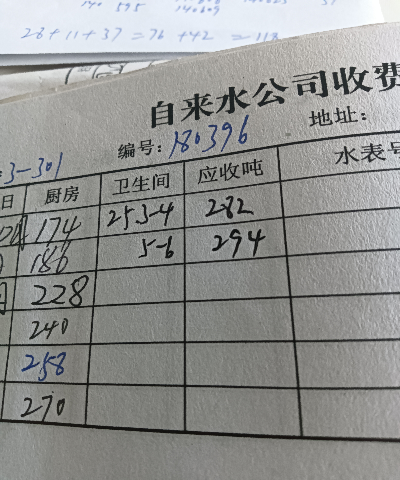 28+11+37=76+42=118
自来水公司收费
编号:180396 地址:
3-301
日 厨房 卫生间 应收吨 水表号
174 253-4 282
186 5-6 294
228
240
258
270